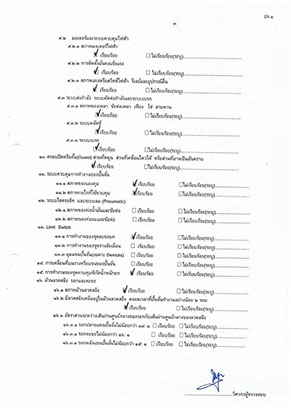 ปจ.๑
๓
๙.๒ มอเตอร์และระบบควบคุมไฟฟ้า
๙.๒.๑ สภาพมอเตอร์ไฟฟ้า
เรียบร้อย ไม่เรียบร้อย(ระบุ)
๙.๒.๒ การติดตั้งมั่นคงแข็งแรง
เรียบร้อย ไม่เรียบร้อย(ระบุ)
เรียบร้อย ไม่เรียบร้อย(ระบุ)
๙.๓ ระบบส่งกำลัง ระบบตัดต่อกำลังและระบบเบรก
๙.๓.๑ สภาพของเพลา ข้อต่อเพลา เฟือง โซ่ สายพาน
เรียบร้อย ไม่เรียบร้อย(ระบุ)
๙.๓.๒ ระบบคลัตช์
เรียบร้อย ไม่เรียบร้อย(ระบุ)
๙.๓.๓ ระบบเบรก
เรียบร้อย ไม่เรียบร้อย(ระบุ)
๑๐. ครอบปิดหรือกั้น(Guard) ส่วนที่หมุน ส่วนที่เคลื่อนไหวได้ หรือส่วนที่อาจเป็นอันตราย
เรียบร้อย ไม่เรียบร้อย(ระบุ)
๑๑. ระบบควบคุมการทำงานของปั้นจั่น
๑๑.๑ สภาพของแผงควบคุม เรียบร้อย ไม่เรียบร้อย(ระบุ)
๑๑.๒ สภาพกลไกที่ใช้ควบคุม เรียบร้อย ไม่เรียบร้อย(ระบุ)
๑๒. ระบบไฮดรอลิก และระบบลม (Pneumatic)
๑๒.๑ สภาพของท่อน้ำมันและข้อต่อ เรียบร้อย ไม่เรียบร้อย(ระบุ)
๑๒.๒ สภาพของท่อลมและข้อต่อ เรียบร้อย ไม่เรียบร้อย(ระบุ)
๑๓. Limit Switch
๑๓.๑ การทำงานของชุดตะขอยก เรียบร้อย ไม่เรียบร้อย(ระบุ)
๑๓.๒ การทำงานของชุดรางเลื่อน เรียบร้อย ไม่เรียบร้อย(ระบุ)
เรียบร้อย ไม่เรียบร้อย(ระบุ)
๑๔. การเคลื่อนที่บนรางหรือแขนของปั้นจั่น เรียบร้อย ไม่เรียบร้อย(ระบุ)
๑๕. การทำงานของชุดควบคุมพิกัดน้ำหนักยก เรียบร้อย ไม่เรียบร้อย(ระบุ)
๑๖. ม้วนลวดสลิง รอกและตะขอ
๑๖.๑ สภาพม้วนลวดสลิง เรียบร้อย ไม่เรียบร้อย(ระบุ)
๑๖.๒ มีลวดสลิงเหลืออยู่ในม้วนลวดสลิง ตลอดเวลาที่ปั้นจั่นทำงานอย่างน้อย ๒ รอบ
เรียบร้อย ไม่เรียบร้อย(ระบุ)
๑๖.๓ อัตราส่วนระหว่างเส้นผ่านศูนย์กลางของรอกกับเส้นผ่านศูนย์กลางของลวดสลิง
๑๖.๓.๑ รอกปลายแขนปั้นจั่นไม่น้อยกว่า ๑๘: ๑ เรียบร้อย ไม่เรียบร้อย(ระบุ)
เรียบร้อย ไม่เรียบร้อย(ระบุ)
๑๖.๓.๓ รอกหลังแขนปั้นจั่นไม่น้อยกว่า ๑๕: ๑ เรียบร้อย ไม่เรียบร้อย(ระบุ)
วิศวกรผู้ตรวจสอบ